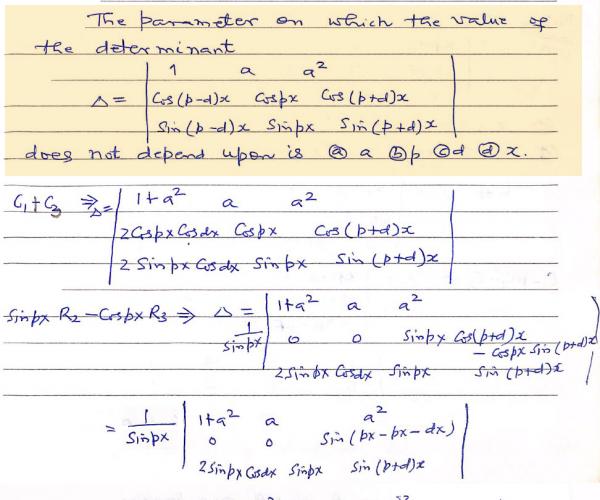 The parameter on which the value of
the determinant
| 1 a a² |
Δ = | Cos(p-d)x Cospx Cos(p+d)x |
| Sin(p-d)x Sinpx Sin(p+d)x |
does not depend upon is ⓐ a ⓑ p ⓒ d ⓓ x.
C₁+C₃ ⇒ Δ= | 1+a² a a² |
| 2CospxCosdx Cospx Cos(p+d)x |
| 2 Sinpx Cosdx Sinpx Sin(p+d)x |
Sinpx R₂ - Cospx R₃ ⇒ Δ = 1/Sinpx | 1+a² a a² |
| 0 0 Sinpx Cos(p+d)x
- Cospx Sin(p+d)x |
| 2Sinpx Cosdx Sinpx Sin(p+d)x |
= 1/Sinpx | 1+a² a a² |
| 0 0 Sin(px-px-dx) |
| 2Sinpx Cosdx Sinpx Sin(p+d)x |